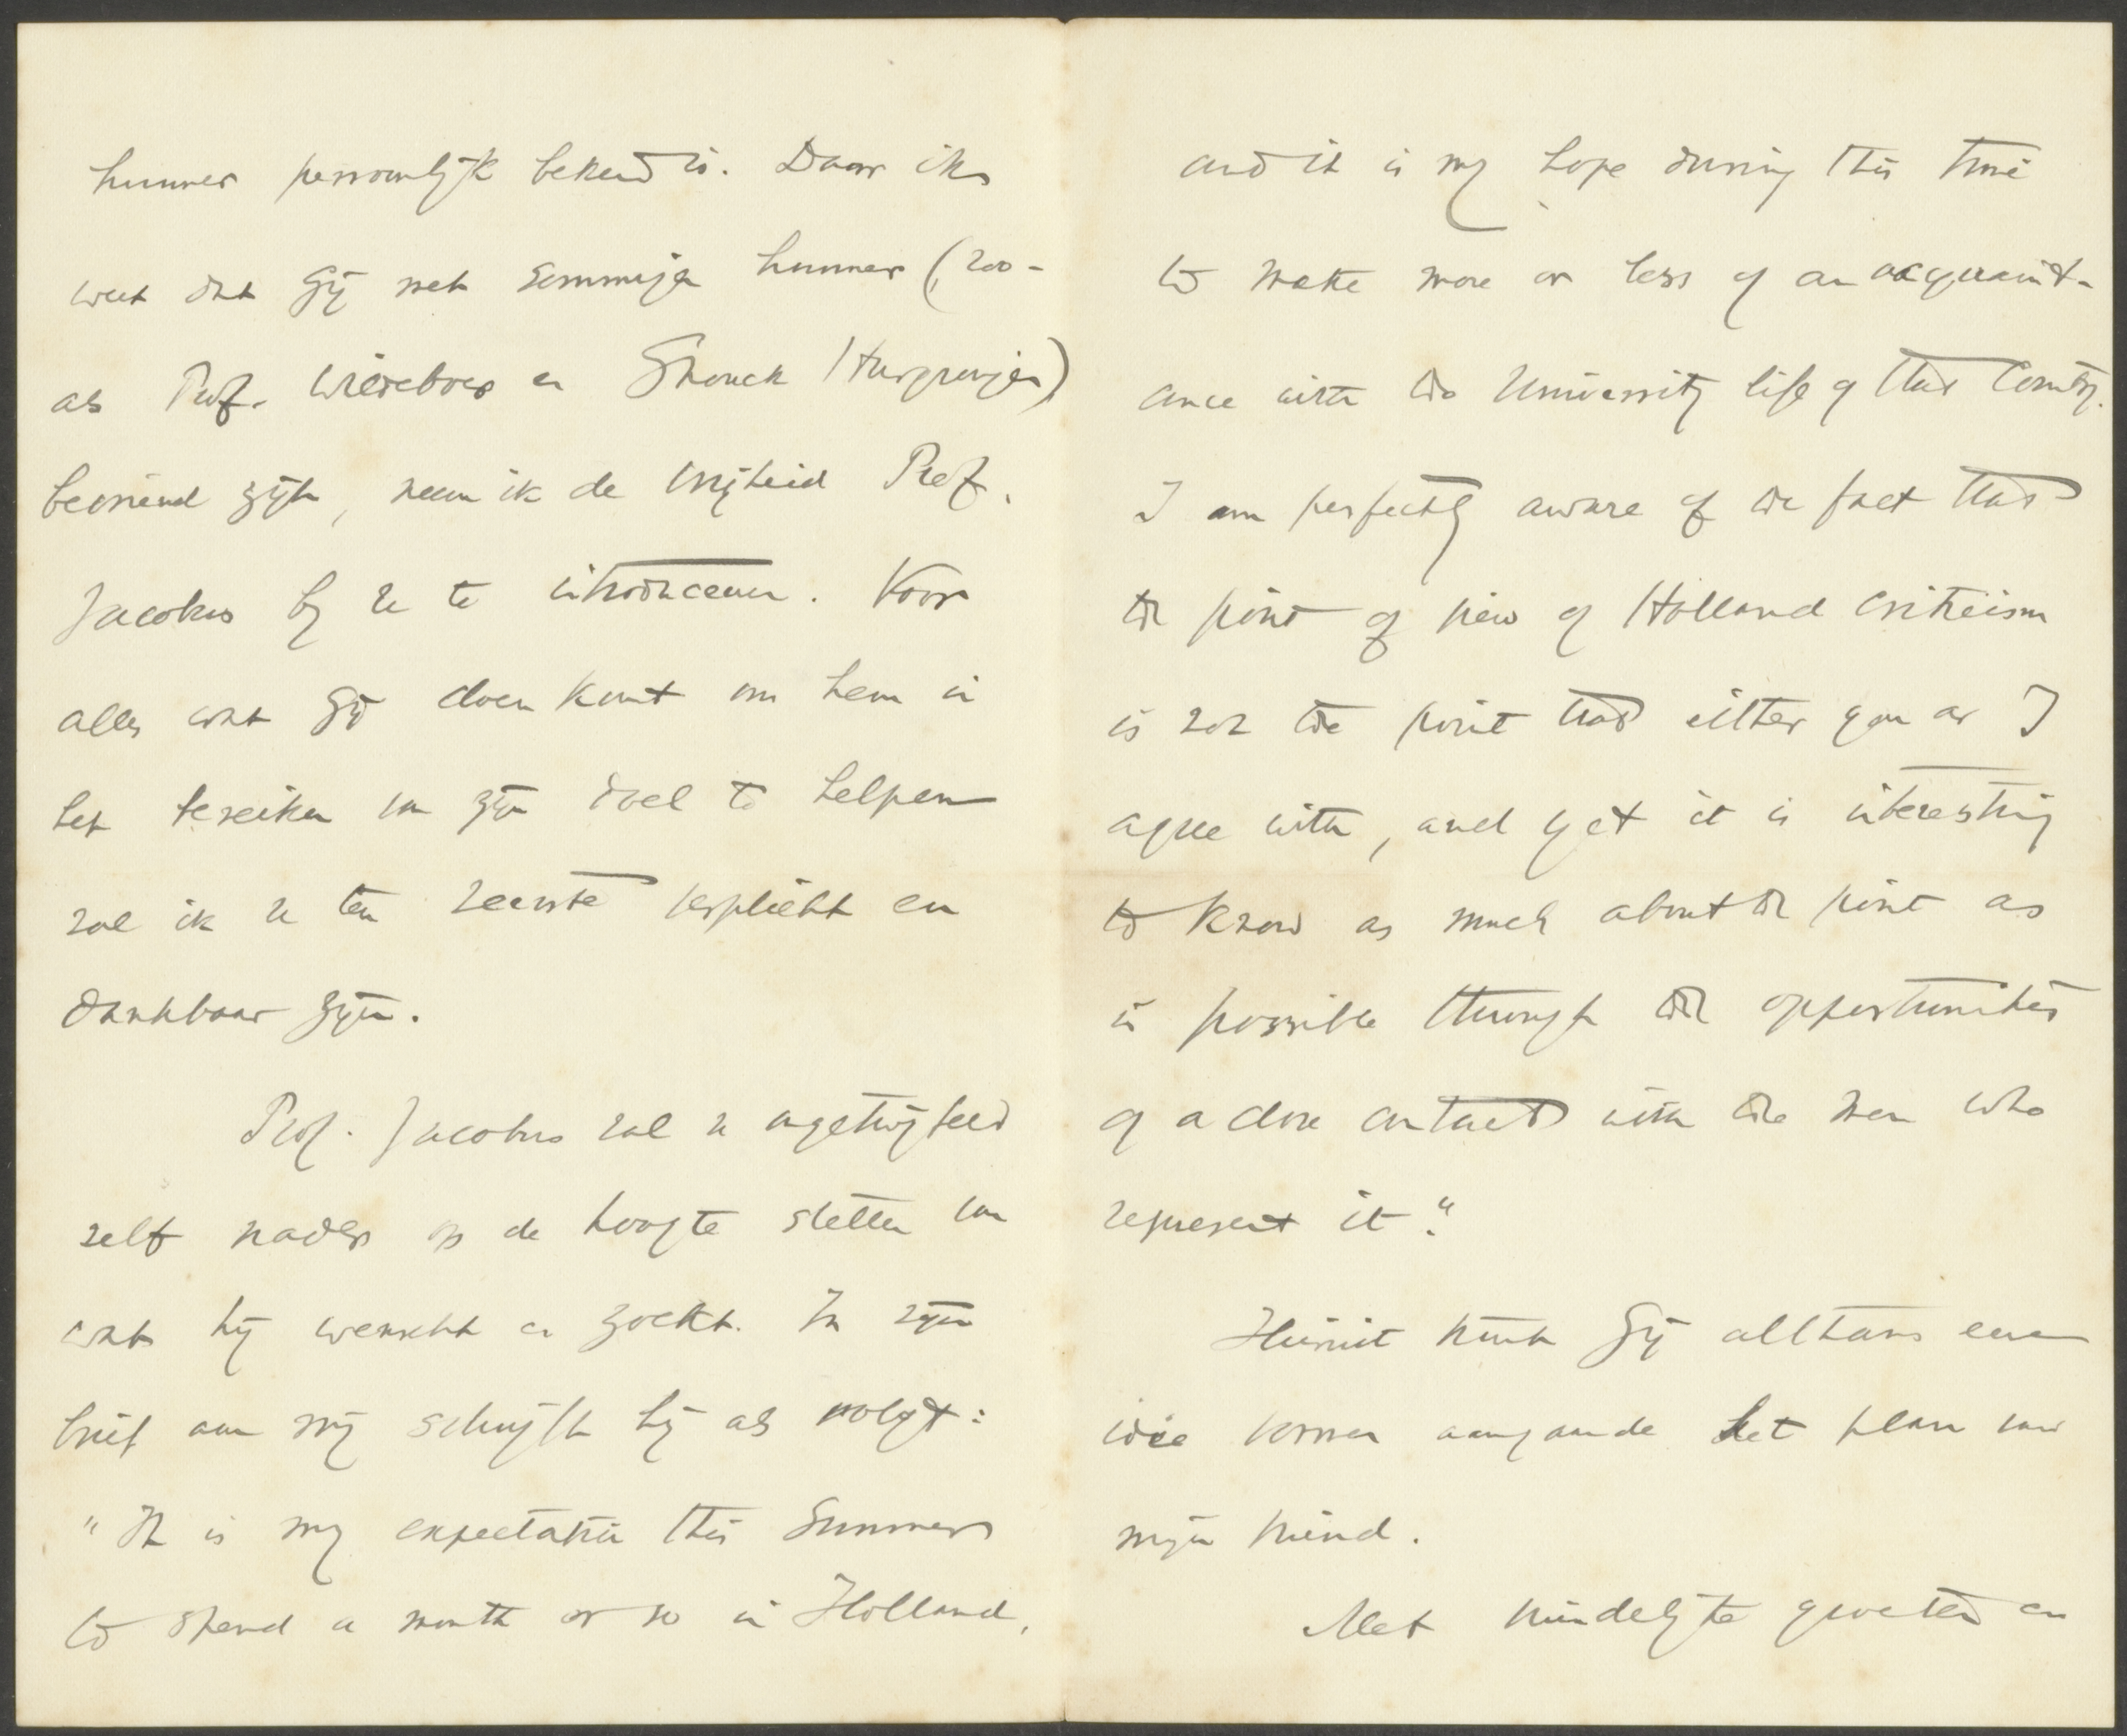 hunner persoonlijk bekend is. Daar ik
weet dat Gij met sommigen hunner (zoo-
als Prof. Wildeboer en Snouck Hurgronje)
bevriend zijt, neem ik de vrijheid Prof.
Jacobus bij U te introduceeren. Voor
alles wat Gij doen kunt om hem in
het bereiken van zijn doel te helpen
zal ik U ten zeerste verplicht en
dankbaar zijn.
Prof. Jacobus zal U ongetwijfeld
zelf nader op de hoogte stellen van
wat hij wenscht en zoekt. In zijn
brief aan mij schrijft hij als volgt:
"It is my expectation this Summer
to spend a month or so in Holland,
and it is my hope during this time
to make more or less of an acquaint-
ance with the University life of that Country.
I am perfectly aware of the fact that
the point of view of Holland Criticism
is not the point that either you or I
agree with, and yet it is interesting
to know as much about the point as
is possible through the opportunities
of a close contact with the men who
represent it."
Hieruit kunt Gij althans een
idée vormen aangaande het plan van
mijn vriend.
Met vriendelijke groeten en